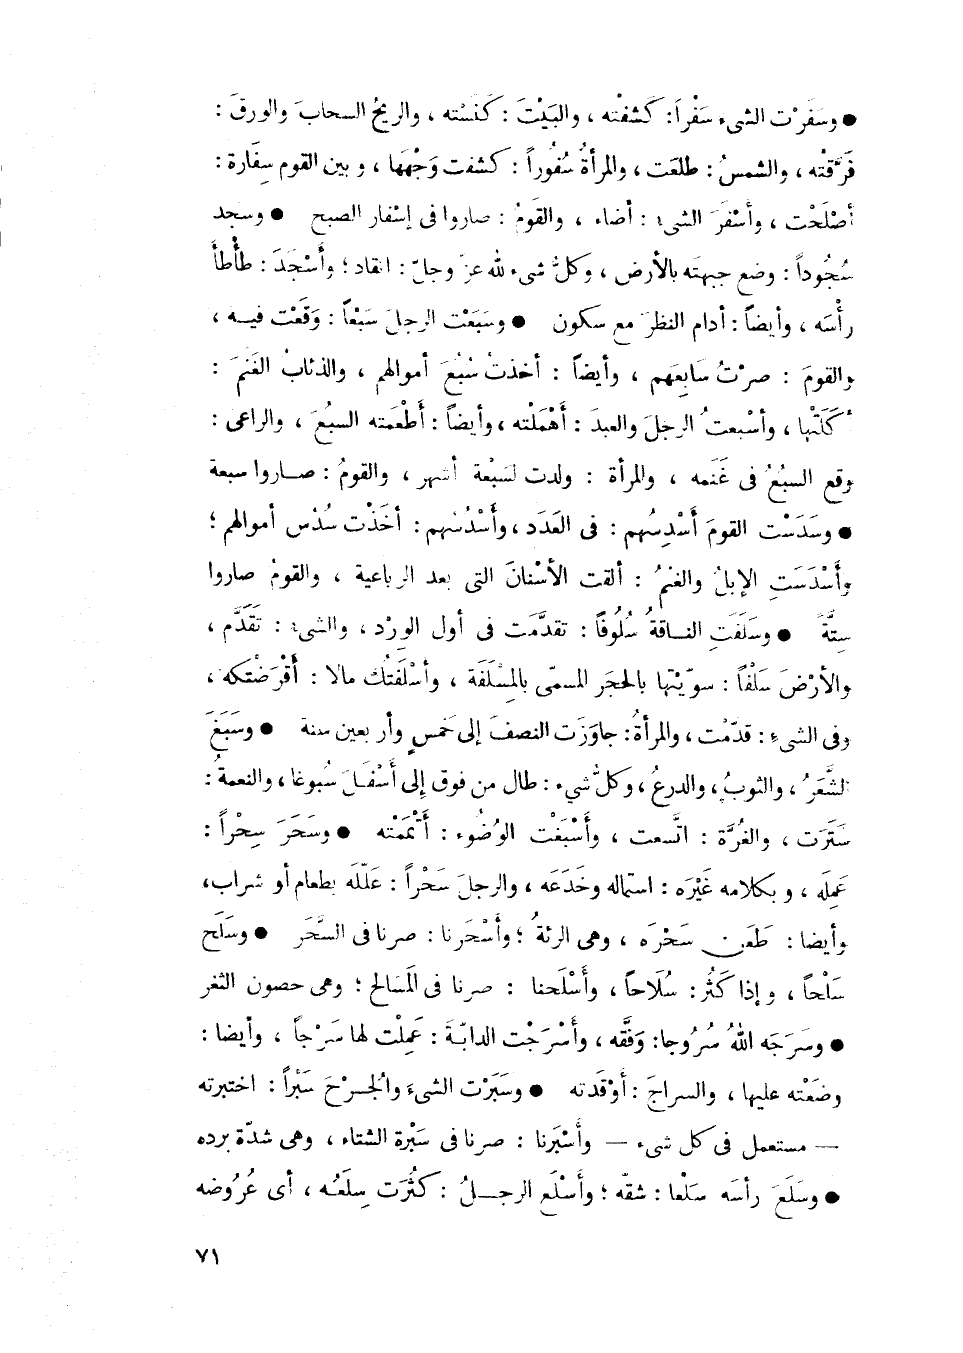 ● وسَفَرْت الشىء سَفْراً: كَشَفْته ، والبَيْتَ : كَنَسْته ، والريحُ السحابَ والورقَ :
فَرَّقَتْه ، والشمسُ : طلعَت ، والمرأةُ سُفُوراً : كشفت وَجْهَها ، وبين القوم سِفَارة :
أصْلَحْت ، وأَسْفَرَ الشىء : أضاء ، والقَومُ : صاروا فى إسْفار الصبح ● وسجد
سُجُوداً : وضع جبهته بالأرض ، وكلُّ شىء لله عزّ وجلّ : انقاد ؛ وأَسْجَدَ : طَأْطَأَ
رأْسَه ، وأيضاً : أدام النظرَ مع سكون ● وسَبَعْت الرجلَ سَبْعاً : وَقَعْت فيه ،
والقومَ : صرْتُ سَابِعَهم ، وأيضاً : أخذتُ سُبُعَ أموالهم ، والذئابُ الغَنَمَ :
أكَلَتْها ، وأسْبعتُ الرجلَ والعبدَ : أَهْمَلْته ، وأيضاً : أَطْعَمْته السبُعَ ، والراعى :
وقع السبُعُ فى غَنَمه ، والمرأة : ولدت لسَبْعة أشهر ، والقومُ : صاروا سبعة
● وسَدَسْت القومَ أَسْدِسُهم : فى العَدَد ، وأَسْدُسُهم : أخَذْت سُدُس أموالهم ؛
وأَسْدَسَتِ الإبلُ والغنمُ : ألقت الأسْنانَ التى بعد الرباعية ، والقومُ صاروا
سِتَّةً ● وسَلَفَتِ الناقةُ سُلُوفاً : تقدَّمَت فى أول الوِرْد ، والشىءُ : تَقَدَّم ،
والأرْضَ سَلْفاً : سوّيْتها بالحجَر المسمّى بالمِسْلَفَة ، وأسْلَفْتُك مالا : أَقْرَضْتكه ،
وفى الشىءِ : قدّمْت ، والمرأةُ : جاوَزَت النصفَ إلى خَمسٍ وأربعين سنة ● وسَبَغَ
الشَّعَرُ ، والثوبُ ، والدرعُ ، وكلُّ شىء : طال من فوق إلى أَسْفَلَ سُبوغا ، والنعمةُ :
سَتَرَت ، والغُرَّة : اتَّسعت ، وأَسْبَغْت الوُضُوء : أَتْمَمْته ● وسَحَرَ سِحْراً :
عَمِلَه ، وبكلامه غَيْرَه : استماله وخَدَعَه ، والرجلَ سَحْراً : عَلّلَه بطعام أو شراب ،
وأيضا : طَعَن سَحْرَه ، وهى الرئةُ ؛ وأَسْحَرنا : صرنا فى السَّحَر ● وسَلَح
سَلْحاً ، وإذا كَثُر : سُلَاحاً ، وأَسْلَحنا : صرنا فى المَسَالح ؛ وهى حصون الثغر
● وسَرَجَه اللهُ سُرُوجا : وَفَّقه ، وأَسْرَجْت الدابّةَ : عَمِلْت لها سَرْجاً ، وأيضا :
وضَعْته عليها ، والسراجَ : أوْقَدته ● وسَبَرْت الشىءَ والجرْحَ سَبْراً : اختبرته
— مستعمل فى كل شىء — وأَسْبَرنا : صرنا فى سَبْرة الشتاء ، وهى شدّة برده
● وسَلَعَ رأسَه سَلْعا : شقّه ؛ وأَسْلَع الرجلُ : كَثُرَت سِلَعُه ، أى عُرُوضه
٧١